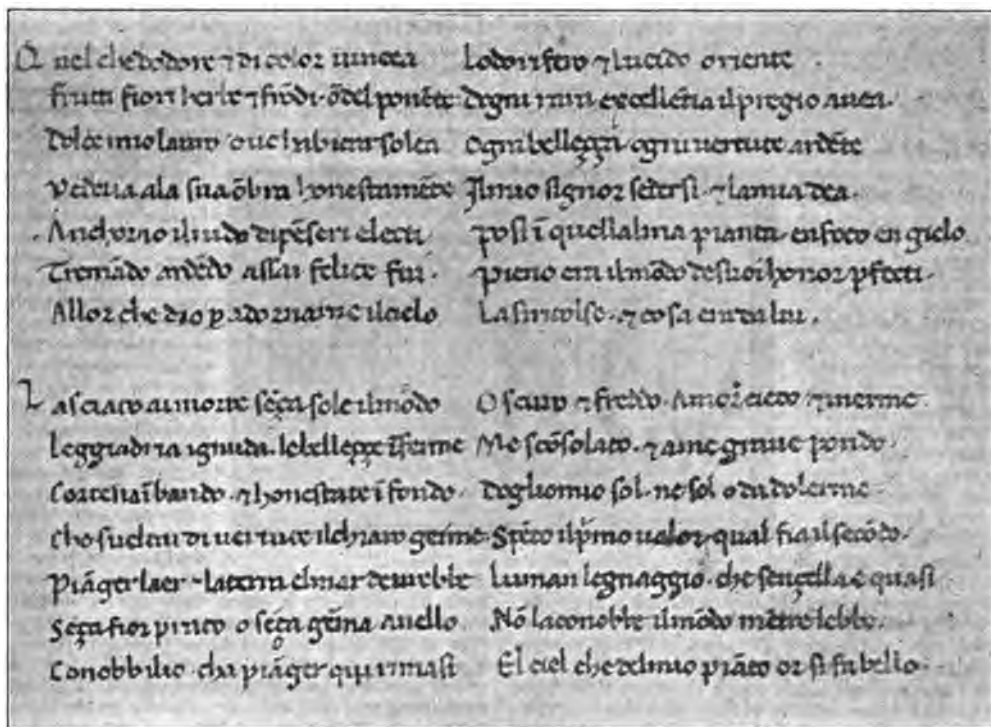 Quel che dodore ⁊ di color uincea Lodorifero ⁊ lucido oriente.
frutti fiori herbe ⁊ frōdi. ōdel ponēte Dogni rara excellētia il pregio auea.
Dolce mio lauro oue habitar solea Ogni belleçça. ogni uertute ardēte
Vedeua ala sua ōbra honestamēte Il mio signor sedersi. ⁊ lamia dea.
Anchor io il nido di pēseri electi. Posi ī quellalma pianta. en foco en gielo
Tremādo ardēdo assai felice fui. Pieno era il mōdo de suoi honor pfecti.
Allor che dio p adornarne il cielo La si ritolse. ⁊ cosa era da lui.
Lasciato ai morte sēça sole il mōdo Oscuro ⁊ freddo. Amor cieco ⁊ inerme.
Leggiadria ignuda. le belleçe īferme Me scōsolato. ⁊ a me graue pondo.
Cortesia ī bando. ⁊ honestate ī fondo. Dogliomio sol. ne sol o da dolerme.
Che suelto ai di uertute il chiaro germe. Spēto il pmo ualor. qual fia il secōdo.
Piāger laer ⁊ la terra el mar deurebbe Luman legnaggio. che sençella e quasi
Sēça fior prato o sēça gēma anello. Nō la conobbe il mōdo mētre lebbe.
Conobbilio cha piāger qui rimasi El ciel che del mio piāto or si fa bello.